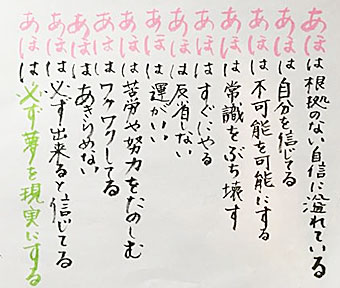 あほは根拠のない自信に溢れている
あほは自分を信じてる
あほは不可能を可能にする
あほは常識をぶち壊す
あほはすぐにやる
あほは反省しない
あほは運がいい
あほは苦労や努力をたのしむ
あほはワクワクしてる
あほはあきらめない
あほは必ず出来ると信じてる
あほは必ず夢を現実にする